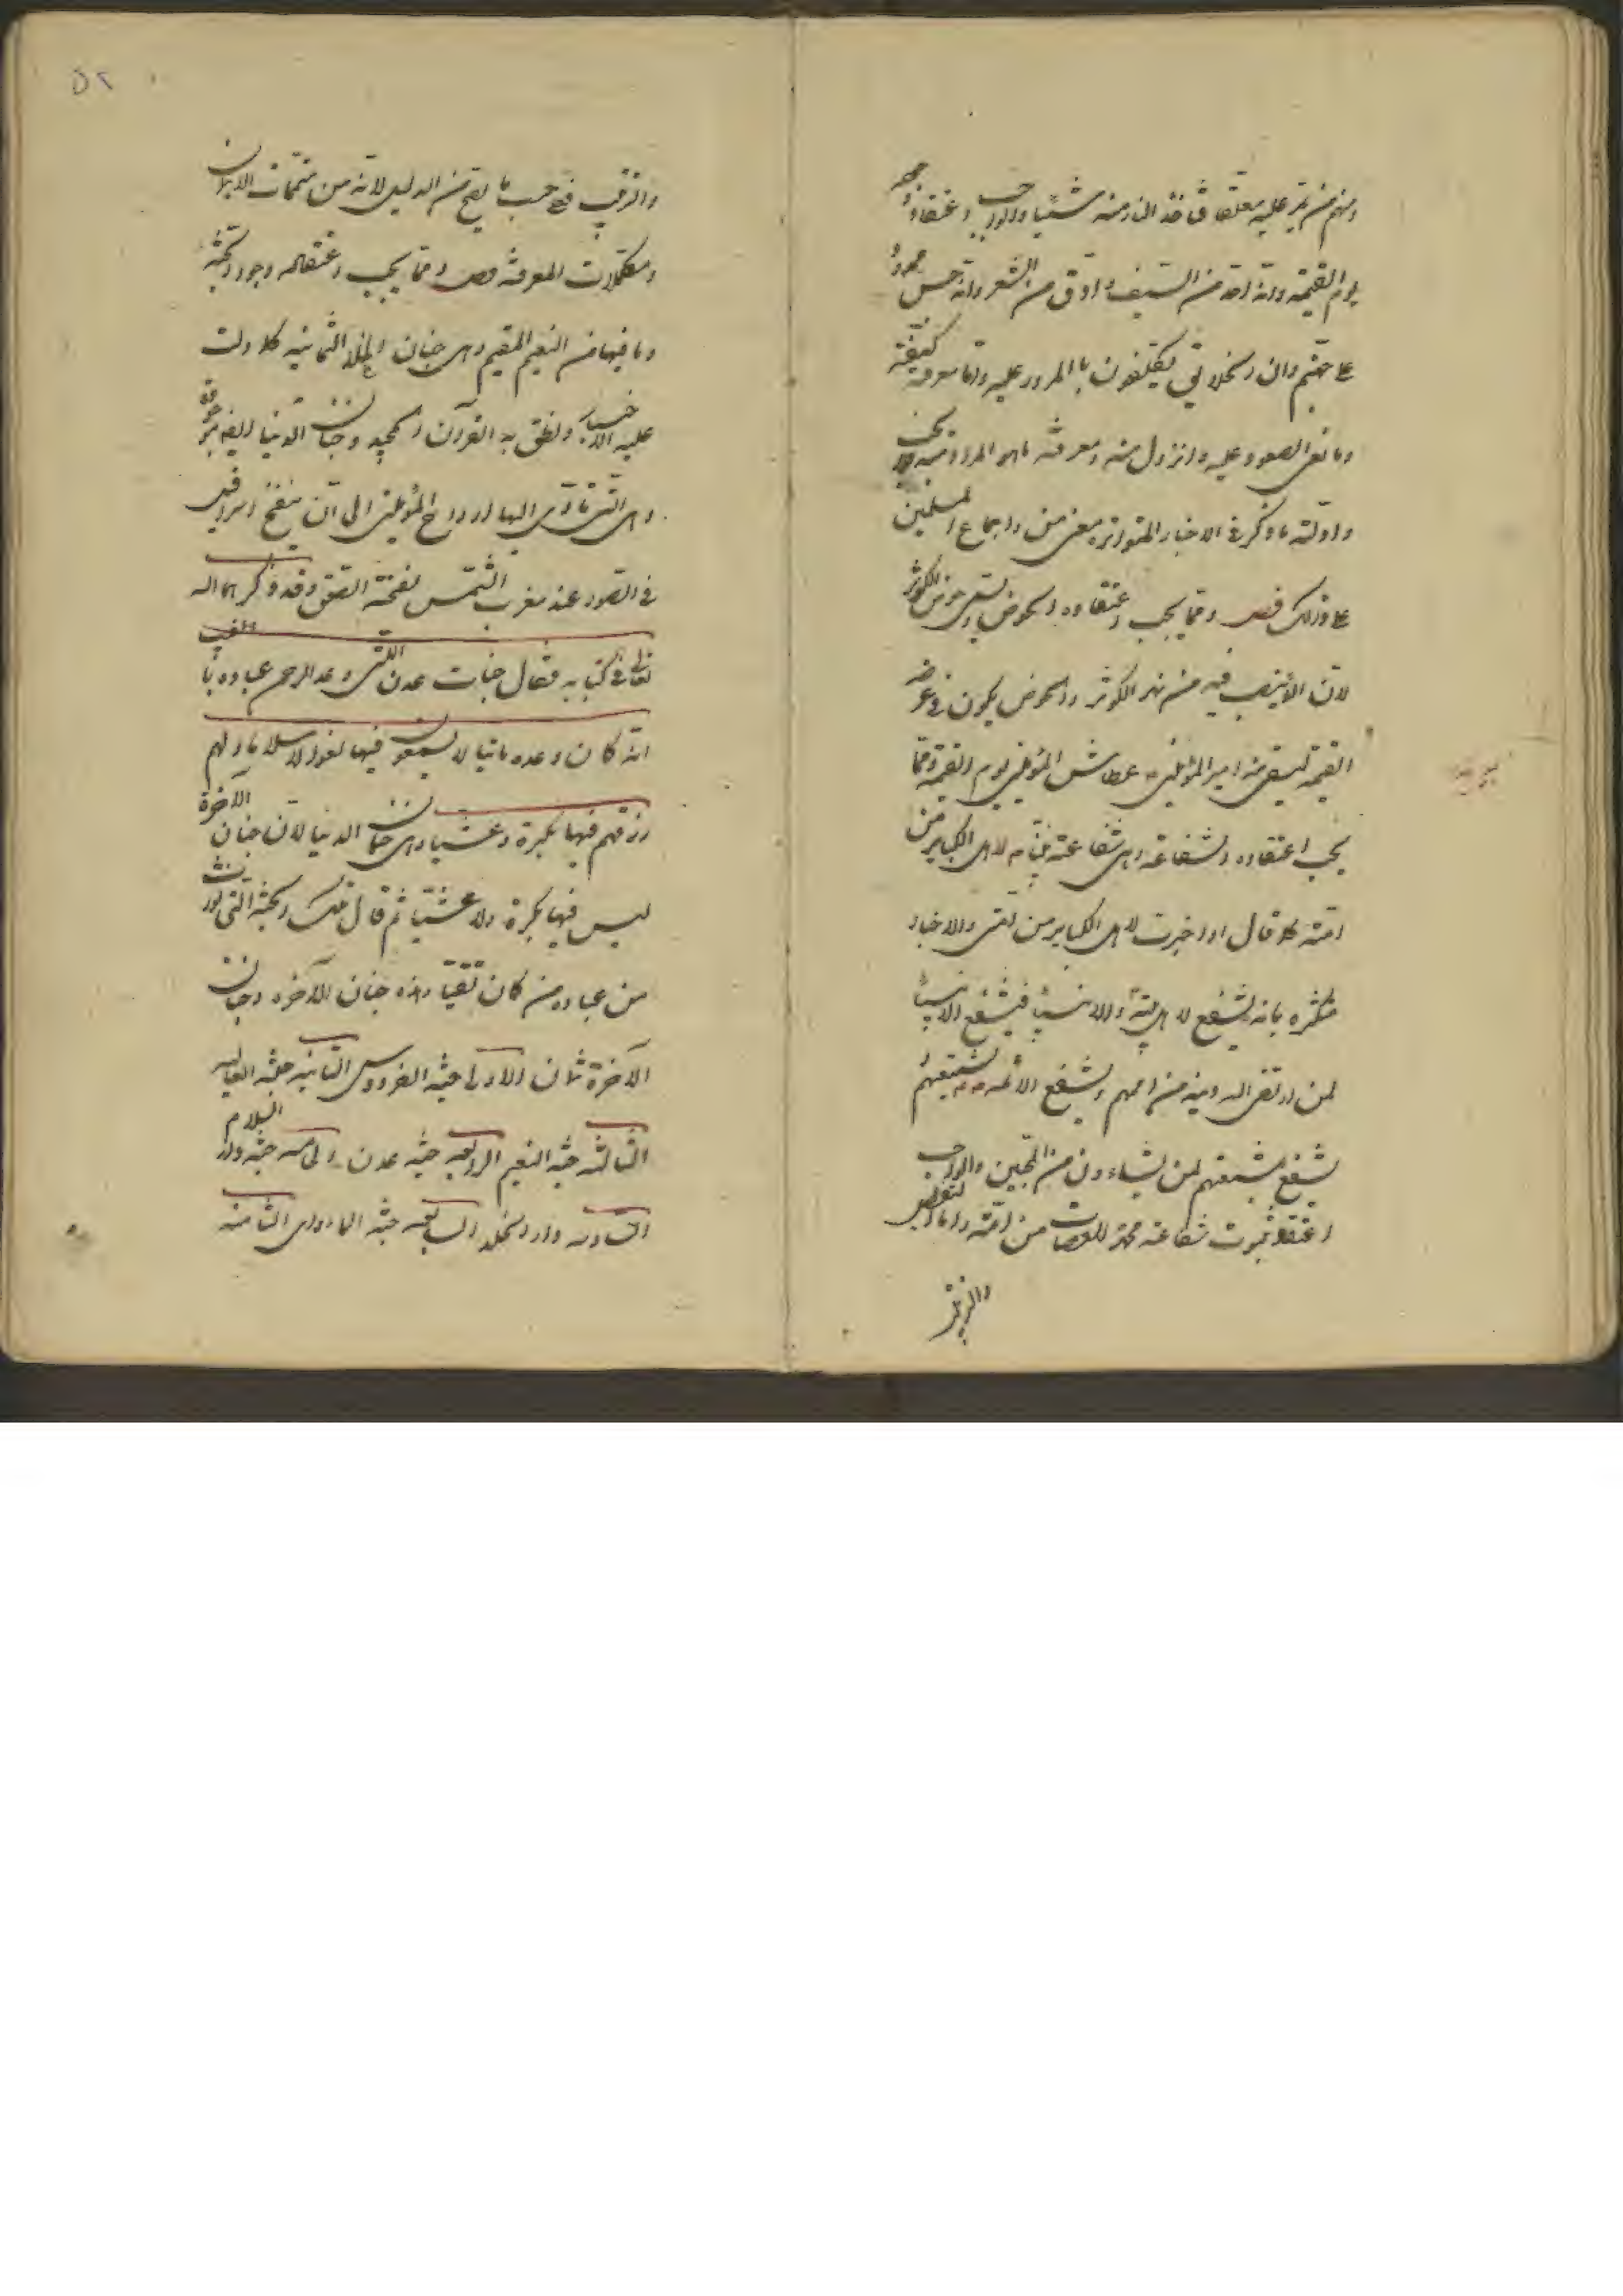 ومنهم من يمر عليه معلقا فتأخذ النار منه شيئا والواجب اعتقاد وجوده
يوم القيمة وانه احد من السيف وادق من الشعر وانه جسر ممدود
على جهنم وان الخلايق يكلفون بالمرور عليه واما معرفة كيفيته
وما نعى الصعود عليه والنزول منه ومعرفة ما هو المراد منه فلا يجب
وادلته ما ذكر في الاخبار المتواترة معنى من واجماع المسلمين
على ذلك فصل ومما يجب اعتقاده الحوض ويسمى حوض الكوثر
لان الماء ينصب فيه من نهر الكوثر والحوض يكون في عرصة
القيمة ليسقى منه امير المؤمنين ع عطاش المؤمنين يوم القيمة ومما
يجب اعتقاده الشفاعة وهى شفاعة نبينا ص لاهل الكباير من
امته كما قال ادخرت لاهل الكباير من امتى والاخبار
متكثرة بانه يشفع لامته والانبياء فيشفع الانبياء
لمن ارتضى الله دينه من اممهم ويشفع الائمة ع لشيعتهم
ويشفع شيعتهم لمن يشاءون من المحبين والواجب
اعتقاد ثبوت شفاعة محمد للعصاة من امته واما التفصيل
والترتيب
٥٢
والترتيب فعلى حسب ما يصح من الدليل لانه من متممات الايمان
ومكملات المعرفة فصل ومما يجب اعتقاده وجود الجنة
وما فيها من النعيم المقيم وهى جنان الخلد الثمانية كما دلت
عليه الاخبار ونطق به القرآن المجيد وجنان الدنيا
وهى التى تأوى اليها ارواح المؤمنين الى ان ينفخ اسرافيل
في الصور عند مغرب الشمس نفخة الصعق وقد ذكرهما الله
تعالى في كتابه فقال جنات عدن التى وعد الرحمن عباده بالغيب
انه كان وعده ماتيا لا يسمعون فيها لغوا الا سلاما ولهم
رزقهم فيها بكرة وعشيا وهى جنان الدنيا لان جنان الآخرة
ليس فيها بكرة ولا عشيا ثم قال تلك الجنة التى نورث
من عبادنا من كان تقيا وهذه جنان الآخرة وجنان
الآخرة ثمان الاولى جنة الفردوس الثانية جنة العالية
الثالثة جنة النعيم الرابعة جنة عدن الخامسة جنة دار السلام
السادسة دار الخلد السابعة جنة الماوى الثامنة